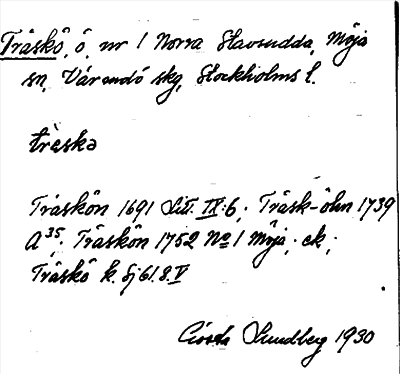 Träskö, ö, nr 1 Norra Stavsudda, Möja
sn, Värmdö skg, Stockholms l.
träskə
Träskön 1691 Litt. IX:6; Träsk-öhn 1739
A 35; Träskön 1752 No 1 Möja, ek;
Träskö k. Sj 61.8.V
Gösta Sundberg 1930